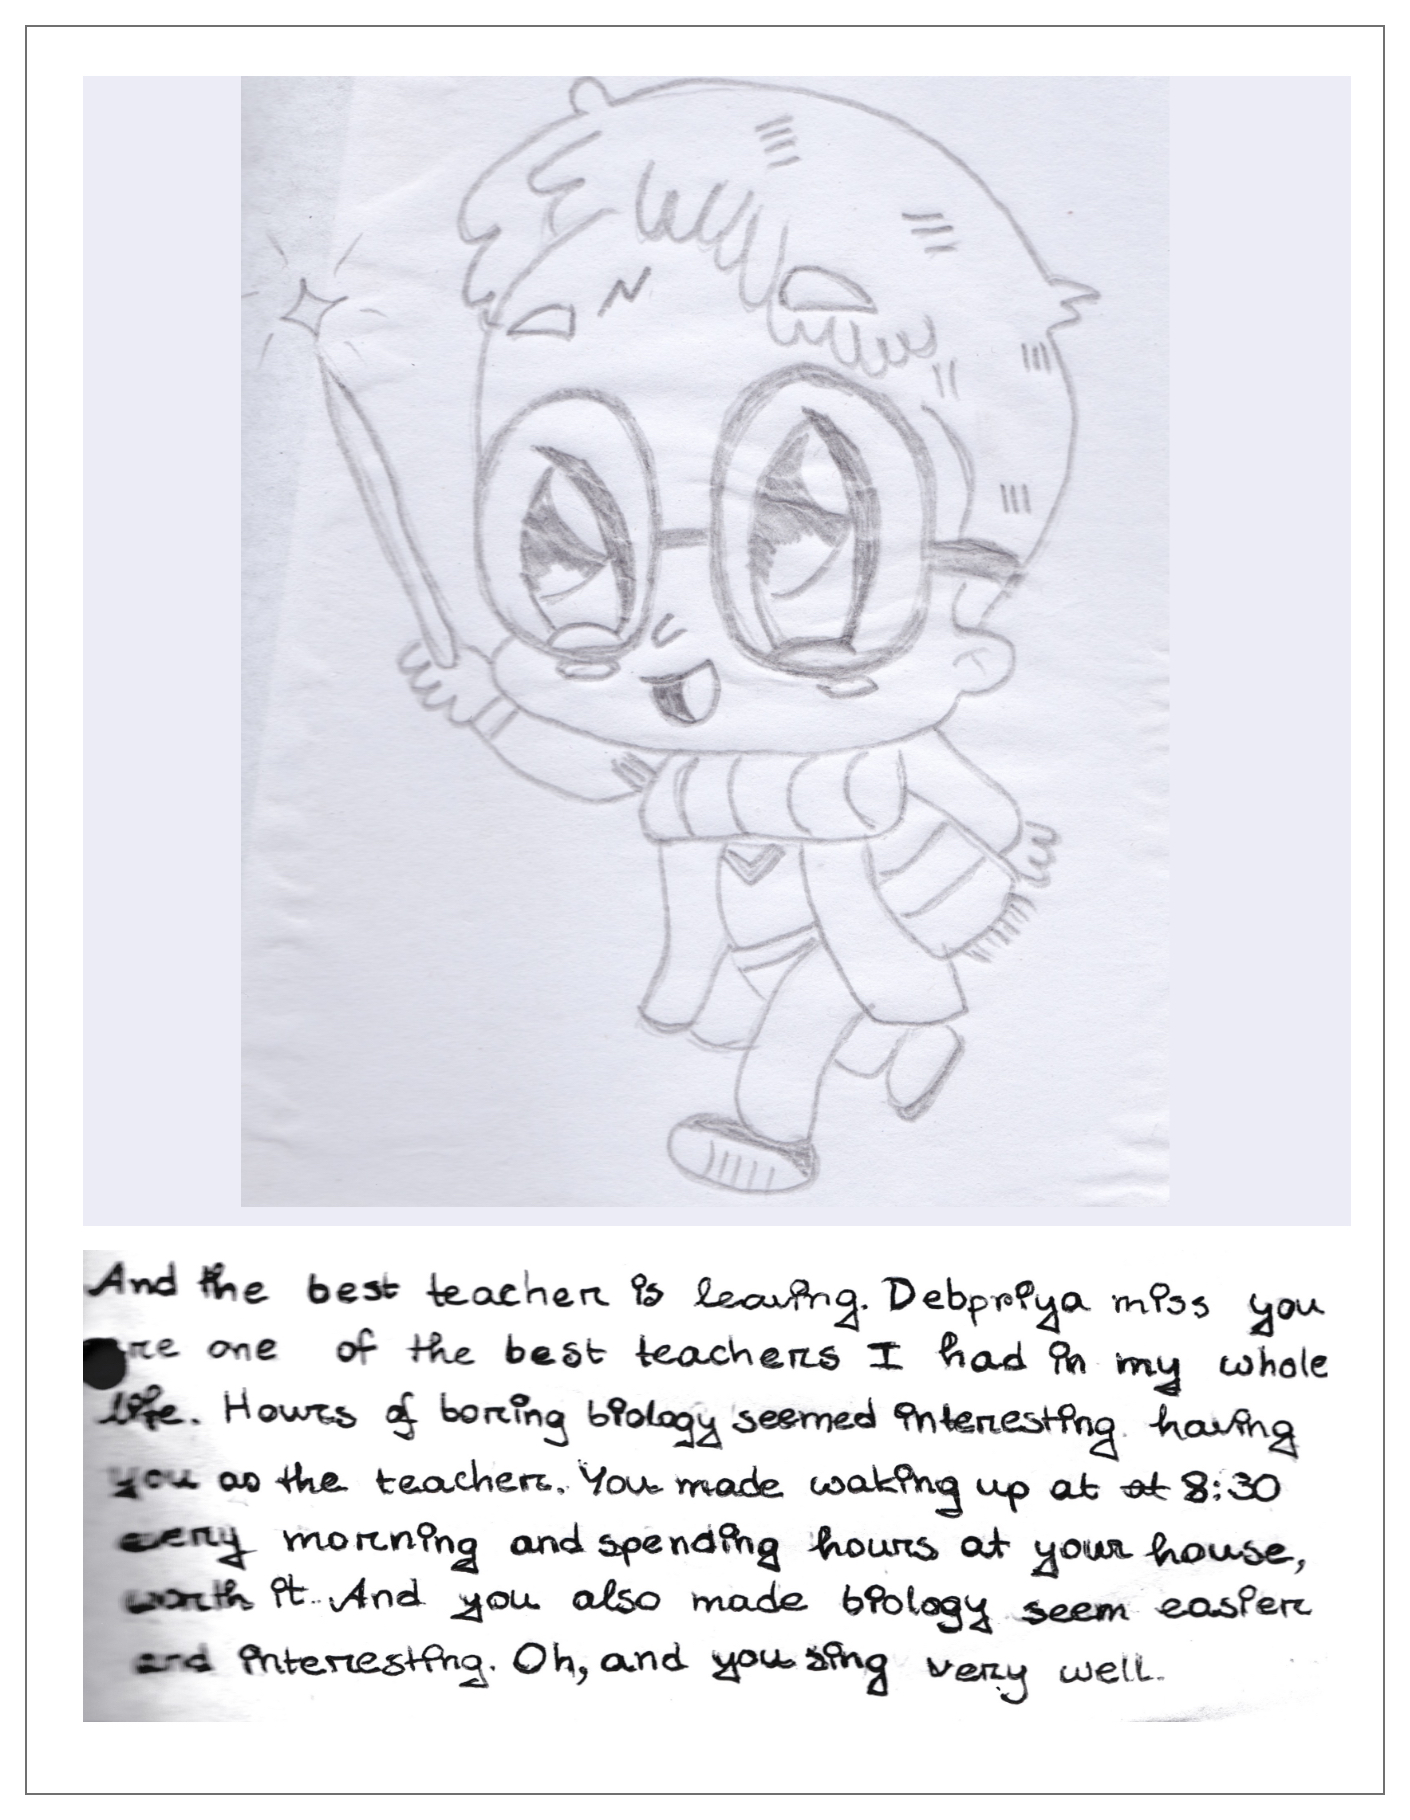 And the best teacher is leaving. Debpriya miss you
are one of the best teachers I had in my whole
life. Hours of boring biology seemed interesting having
you as the teacher. You made waking up at at 8:30
every morning and spending hours at your house,
worth it. And you also made biology seem easier
and interesting. Oh, and you sing very well.